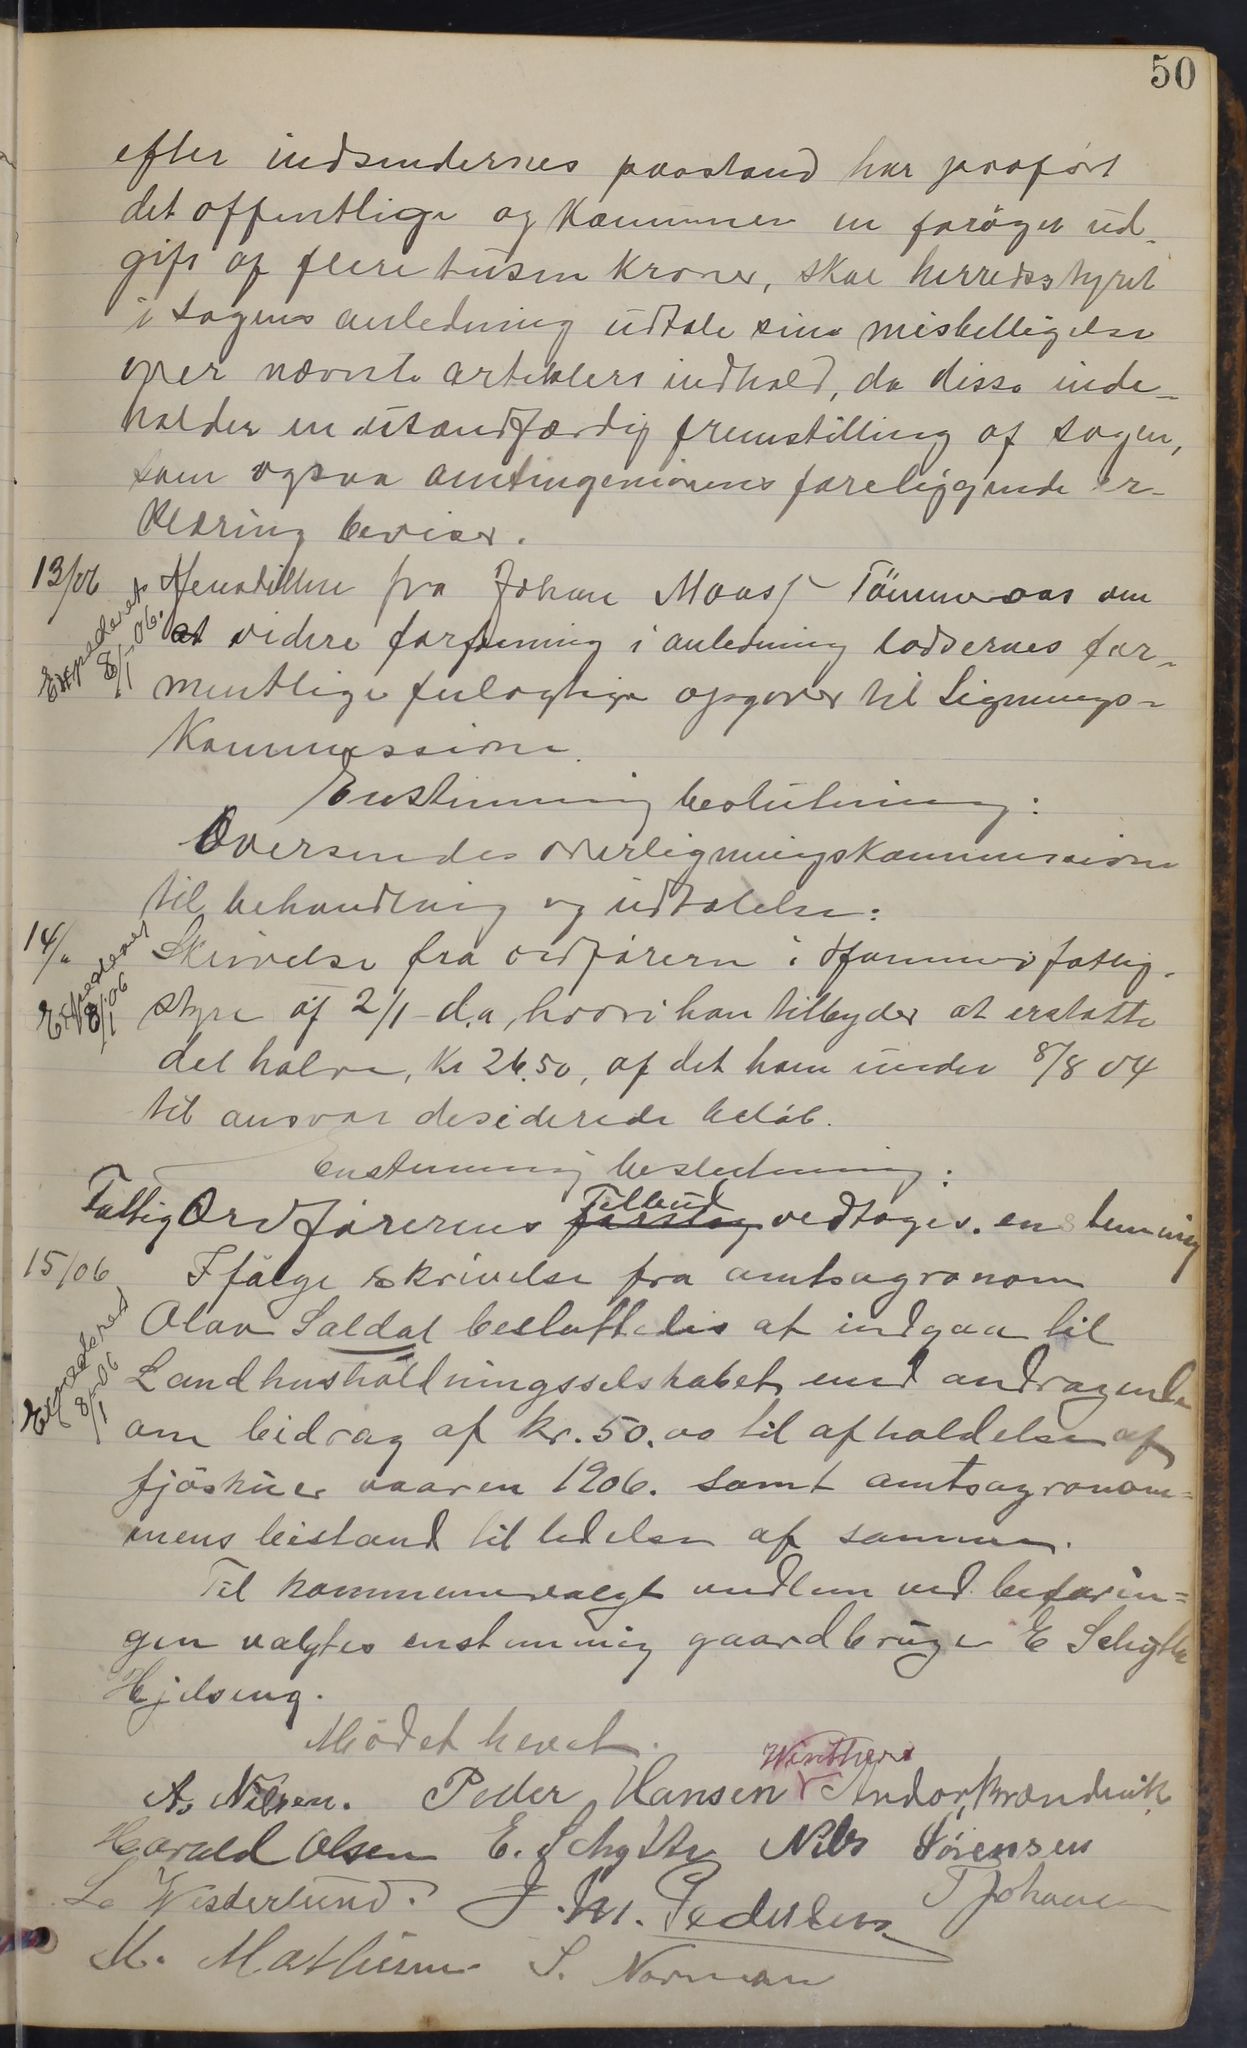 50
efter indsendernes paastand har paaført
det offentlige og Kommunen en forøget ud-
gift af flere tusen Kroner, skal herredsstyret
i sagens anledning udtale sin misbelligelse
over nævnte artiklers indhold, da disse inde-
holder en usandfærdig fremstilling af sagen,
som ogsaa amtingeniørens foreliggende er-
klæring beviser.
13/06 Henstillen fra Johan Maas Tømmeraas om
Expederet 8/1-06.
at videre forføining i anledning lodsernes for-
mentlige feilagtige opgaver til Lignings-
Kommissionen.
Enstemmig beslutning:
Oversendes overligningskommissionen
til behandling og udtalelse.
14/" Skrivelse fra ordføreren i Hammer fattig-
Expederet 8/1 06
styre af 2/1 d.a, hvori han tilbyder at erstatte
det halve, Kr 26.50, af det ham under 8/8 04
til ansvar desiderede beløb.
Enstemmig beslutning:
Fattig Ordførerens forslag Tilbud vedtoges. enstemmig
15/06 Ifølge skrivelse fra amtsagronom
Olav Saldal besluttedes at indgaa til
Expederet 8/1-06
Landhusholdningsselskabet med andragende
om bidrag af kr. 50.00 til afholdelse af
fjøskuer vaaren 1906. samt amtsagronom=
mens bistand til ledelse af samme.
Til kommunevalgt medlem ved befarin=
gen valgtes enstemmig gaardbruger E Schytte
Hjelseng.
Mødet hevet.
As Nilsen. Peder Hansen Winther Andor Brændvik
Harald Olsen E. Schytte Nils Sörensen
L. Westerlund. J. M. Pedersen T Johansen
M. Mathisen S. Norman